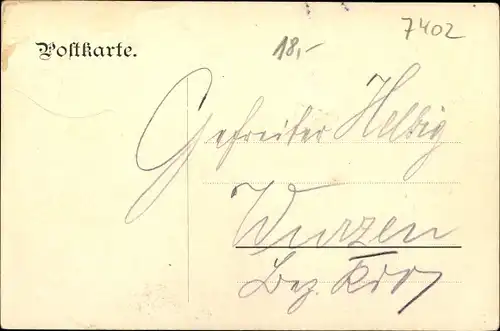 7402
18,-
Postkarte.
Gefreiter Helbig
Wurzen
Bez.